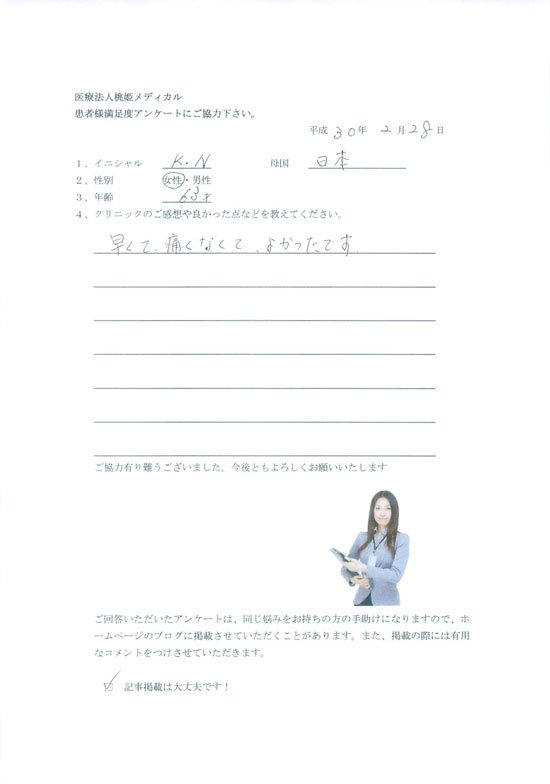 医療法人桃姫メディカル
患者様満足度アンケートにご協力下さい。
平成 30年 2月28日
1、イニシャル K・N 母国 日本
2、性別 女性・男性
3、年齢 63才
4、クリニックのご感想や良かった点などを教えてください。
早くて、痛くなくて、よかったです。
ご協力有り難うございました。今後ともよろしくお願いいたします
ご回答いただいたアンケートは、同じ悩みをお持ちの方の手助けになりますので、ホ
ームページのブログに掲載させていただくことがあります。また、掲載の際には有用
なコメントをつけさせていただきます。
☑ 記事掲載は大丈夫です！